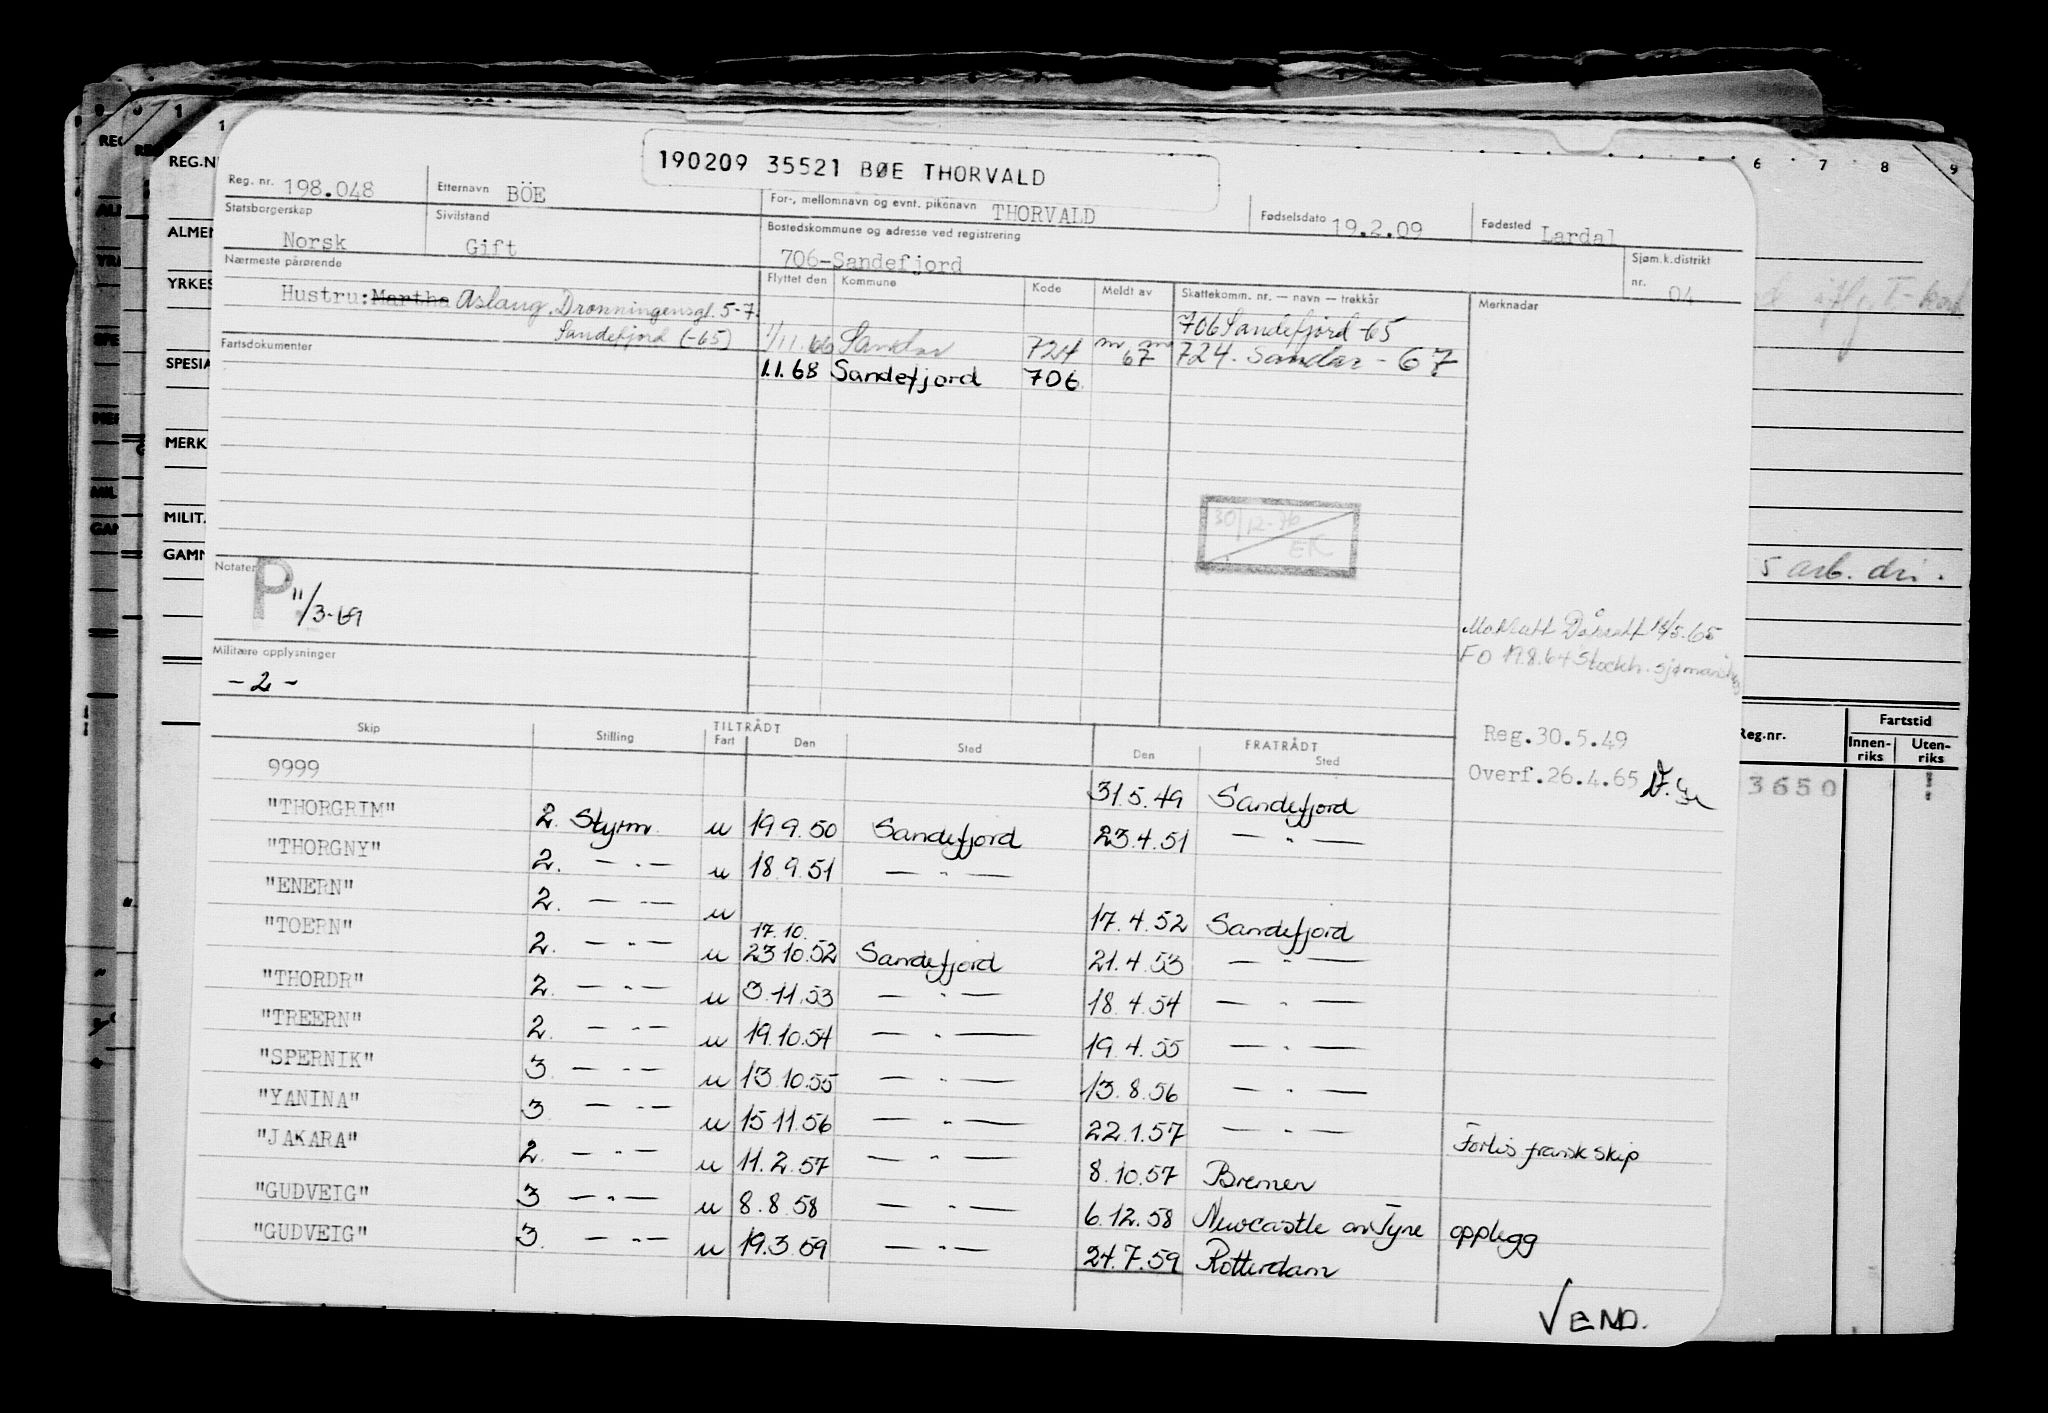 190209 35521 BØE THORVALD
Reg. nr. 198.048 Etternavn BÖE For-, mellomnavn og evnt. pikenavn THORVALD Fødselsdato 19.2.09 Fødested Lardal
Statsborgerskap Norsk Sivilstand Gift Bostedskommune og adresse ved registrering 706-Sandefjord Sjøm.k.distrikt nr. 04
Nærmeste pårørende Flyttet den Kommune Kode Meldt av Skattekomm. nr. — navn — trekkår Merknader
Hustru: Martha Aslaug, Dronningensgt. 5-7. 706 Sandefjord -65
Sandefjord (-65) 1/11.66 Sandar 724 67 724. Sandar - 67
Fartsdokumenter 1.1.68 Sandefjord 706
30/12-76
EK
Notater P. 11/3-69
5 arb. dri.
Militære opplysninger
- 2 -
FO 19.8.64 Stockh.
Reg.30.5.49
Overf.26.4.65
Skip Stilling TILTRÅDT Fart Den Sted FRATRÅDT Den Sted
9999 31.5.49 Sandefjord
"THORGRIM" 2. Styrm. u 19.9.50 Sandefjord 23.4.51 — " —
"THORGNY" 2. — " — u 18.9.51 — " —
"ENERN" 2. — " — u 17.4.52 Sandefjord
"TOERN" 2. — " — u 17.10. 23.10.52 Sandefjord 21.4.53 — " —
"THORDR" 2. — " — u 3.11.53 — " — 18.4.54 — " —
"TREERN" 2. — " — u 19.10.54 — " — 19.4.55 — " —
"SPERNIK" 3. — " — u 13.10.55 — " — 13.8.56 — " —
"YANINA" 3. — " — u 15.11.56 — " — 22.1.57 — " — Forlis fransk skip
"JAKARA" 2. — " — u 11.2.57 — " — 8.10.57 Bremen
"GUDVEIG" 3 — " — u 8.8.58 — " — 6.12.58 Newcastle on Tyne opplegg
"GUDVEIG" 3. — " — u 19.3.59 — " — 24.7.59 Rotterdam
VEND.
REG.N
ALMEN
YRKES
SPESIA
MERK
MILITÆ
GAMM
6 7 8 9
Reg.nr. Fartstid
Innen-riks Uten-riks
3650